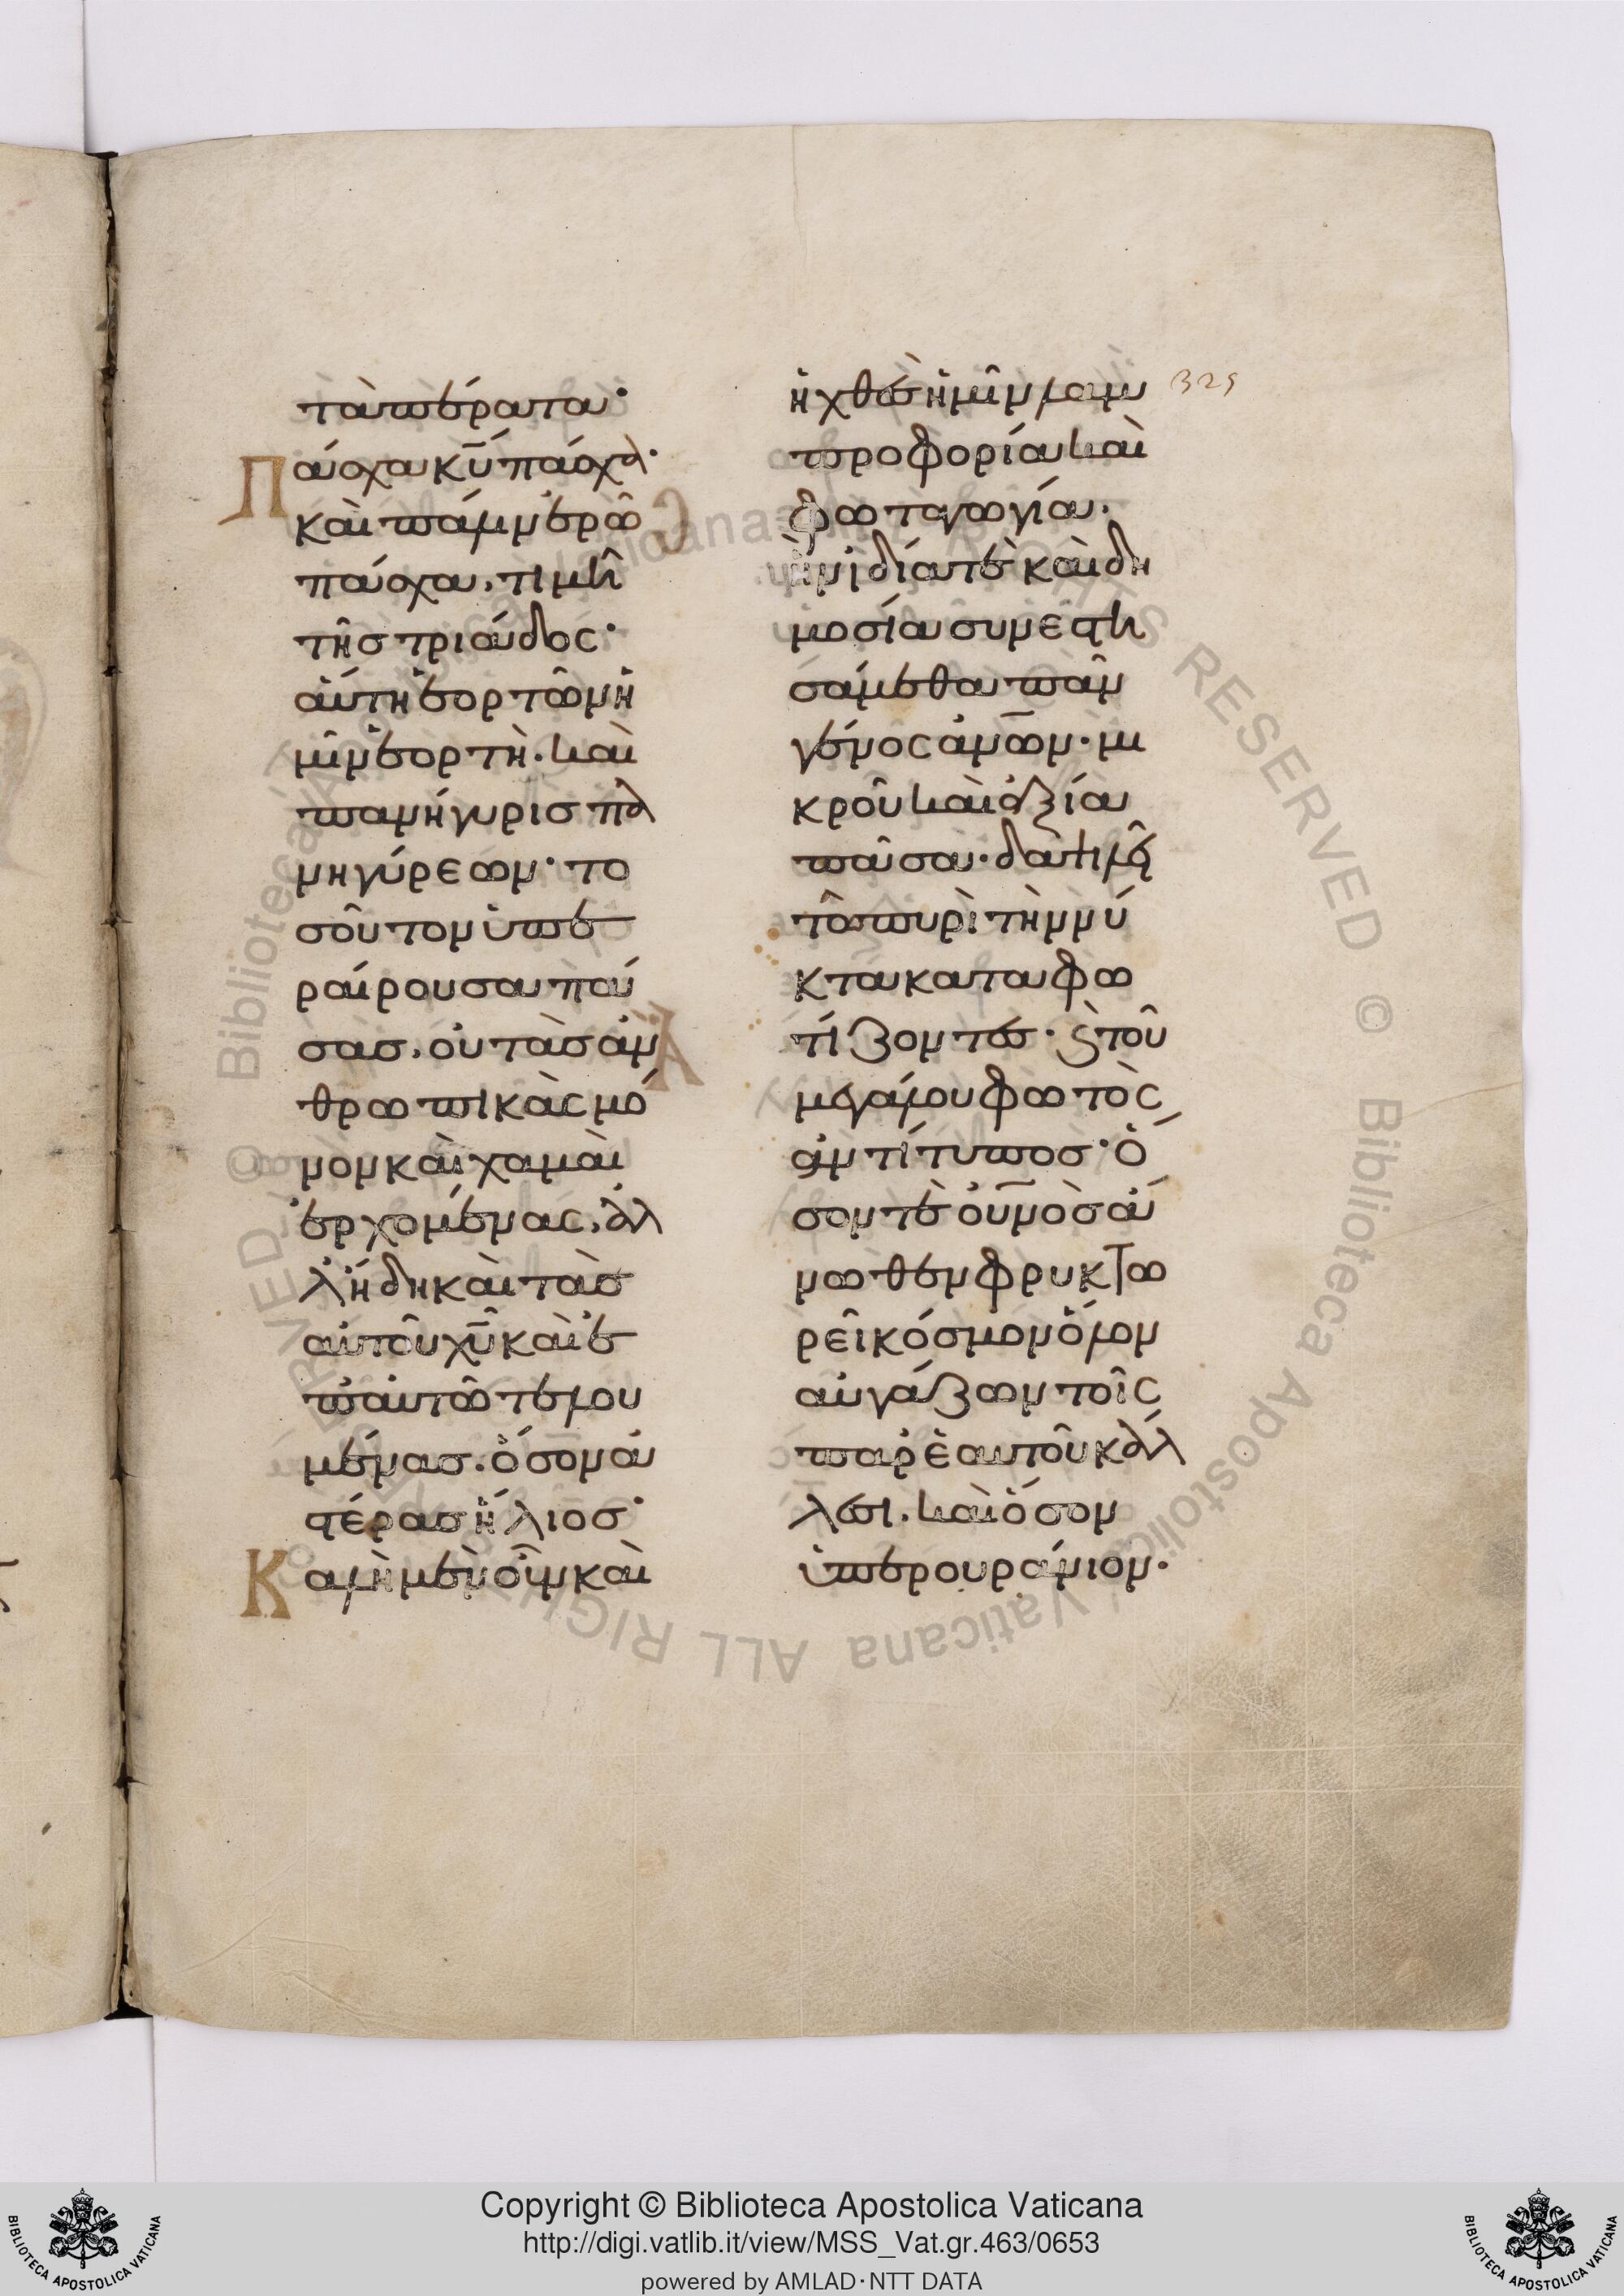 τὰ πέρατα·
Πάσχα κ̅υ̅ πάσχα·
καὶ πάλιν ἐρῶ
πάσχα, τιμῆ
τῆς τριάδος·
αὕτη ἑορτῶν ἡ
μῖν ἑορτὴ. καὶ
πανήγυρις πα
νηγύρεων· το
σοῦτον ὑπε
ραίρουσα πά
σας, οὐ τὰς ἀν
θρωπικὰς μό
νον καὶ χαμαὶ
ἐρχομένας, ἀλ
λ' ἤδη καὶ τὰς
αὐτοῦ χ̅υ̅ καὶ ἐ
π' αὐτῶ τελου
μένας. ὅσον ἀ
στέρας ἥλιος·
Καλὴ μὲν οὖν καὶ
ἡ χθὲς ἡμῖν λαμ
προφορία καὶ
φωταγωγία.
ἣν ἰδία τὲ καὶ δη
μοσία συνεστη
σάμεθα πᾶν
γένος ἀν̅ω̅ν· μι
κροῦ καὶ ἀξία
πᾶσα. δαψιλεῖ
τῶ πυρὶ τὴν νύ
κτα καταφω
τίζοντες· ϛ̀ τοῦ
μεγάλου φωτὸς
ἀντίτυπος· ὅ
σον τὲ ο̅υ̅νὸς ἄ
νωθεν φρυκτω
ρεῖ κόσμον ὅλον
αὐγάζων τοῖς
παρ' ἑαυτοῦ κάλ
λεσι. καὶ ὅσον
ὑπερουράνιον.
329
Copyright © Biblioteca Apostolica Vaticana
http://digi.vatlib.it/view/MSS_Vat.gr.463/0653
powered by AMLAD·NTT DATA
BIBLIOTECA APOSTOLICA VATICANA
BIBLIOTECA APOSTOLICA VATICANA
© Biblioteca Apostolica Vaticana ALL RIGHTS RESERVED © Biblioteca Apostolica Vaticana ALL RIGHTS RESERVED